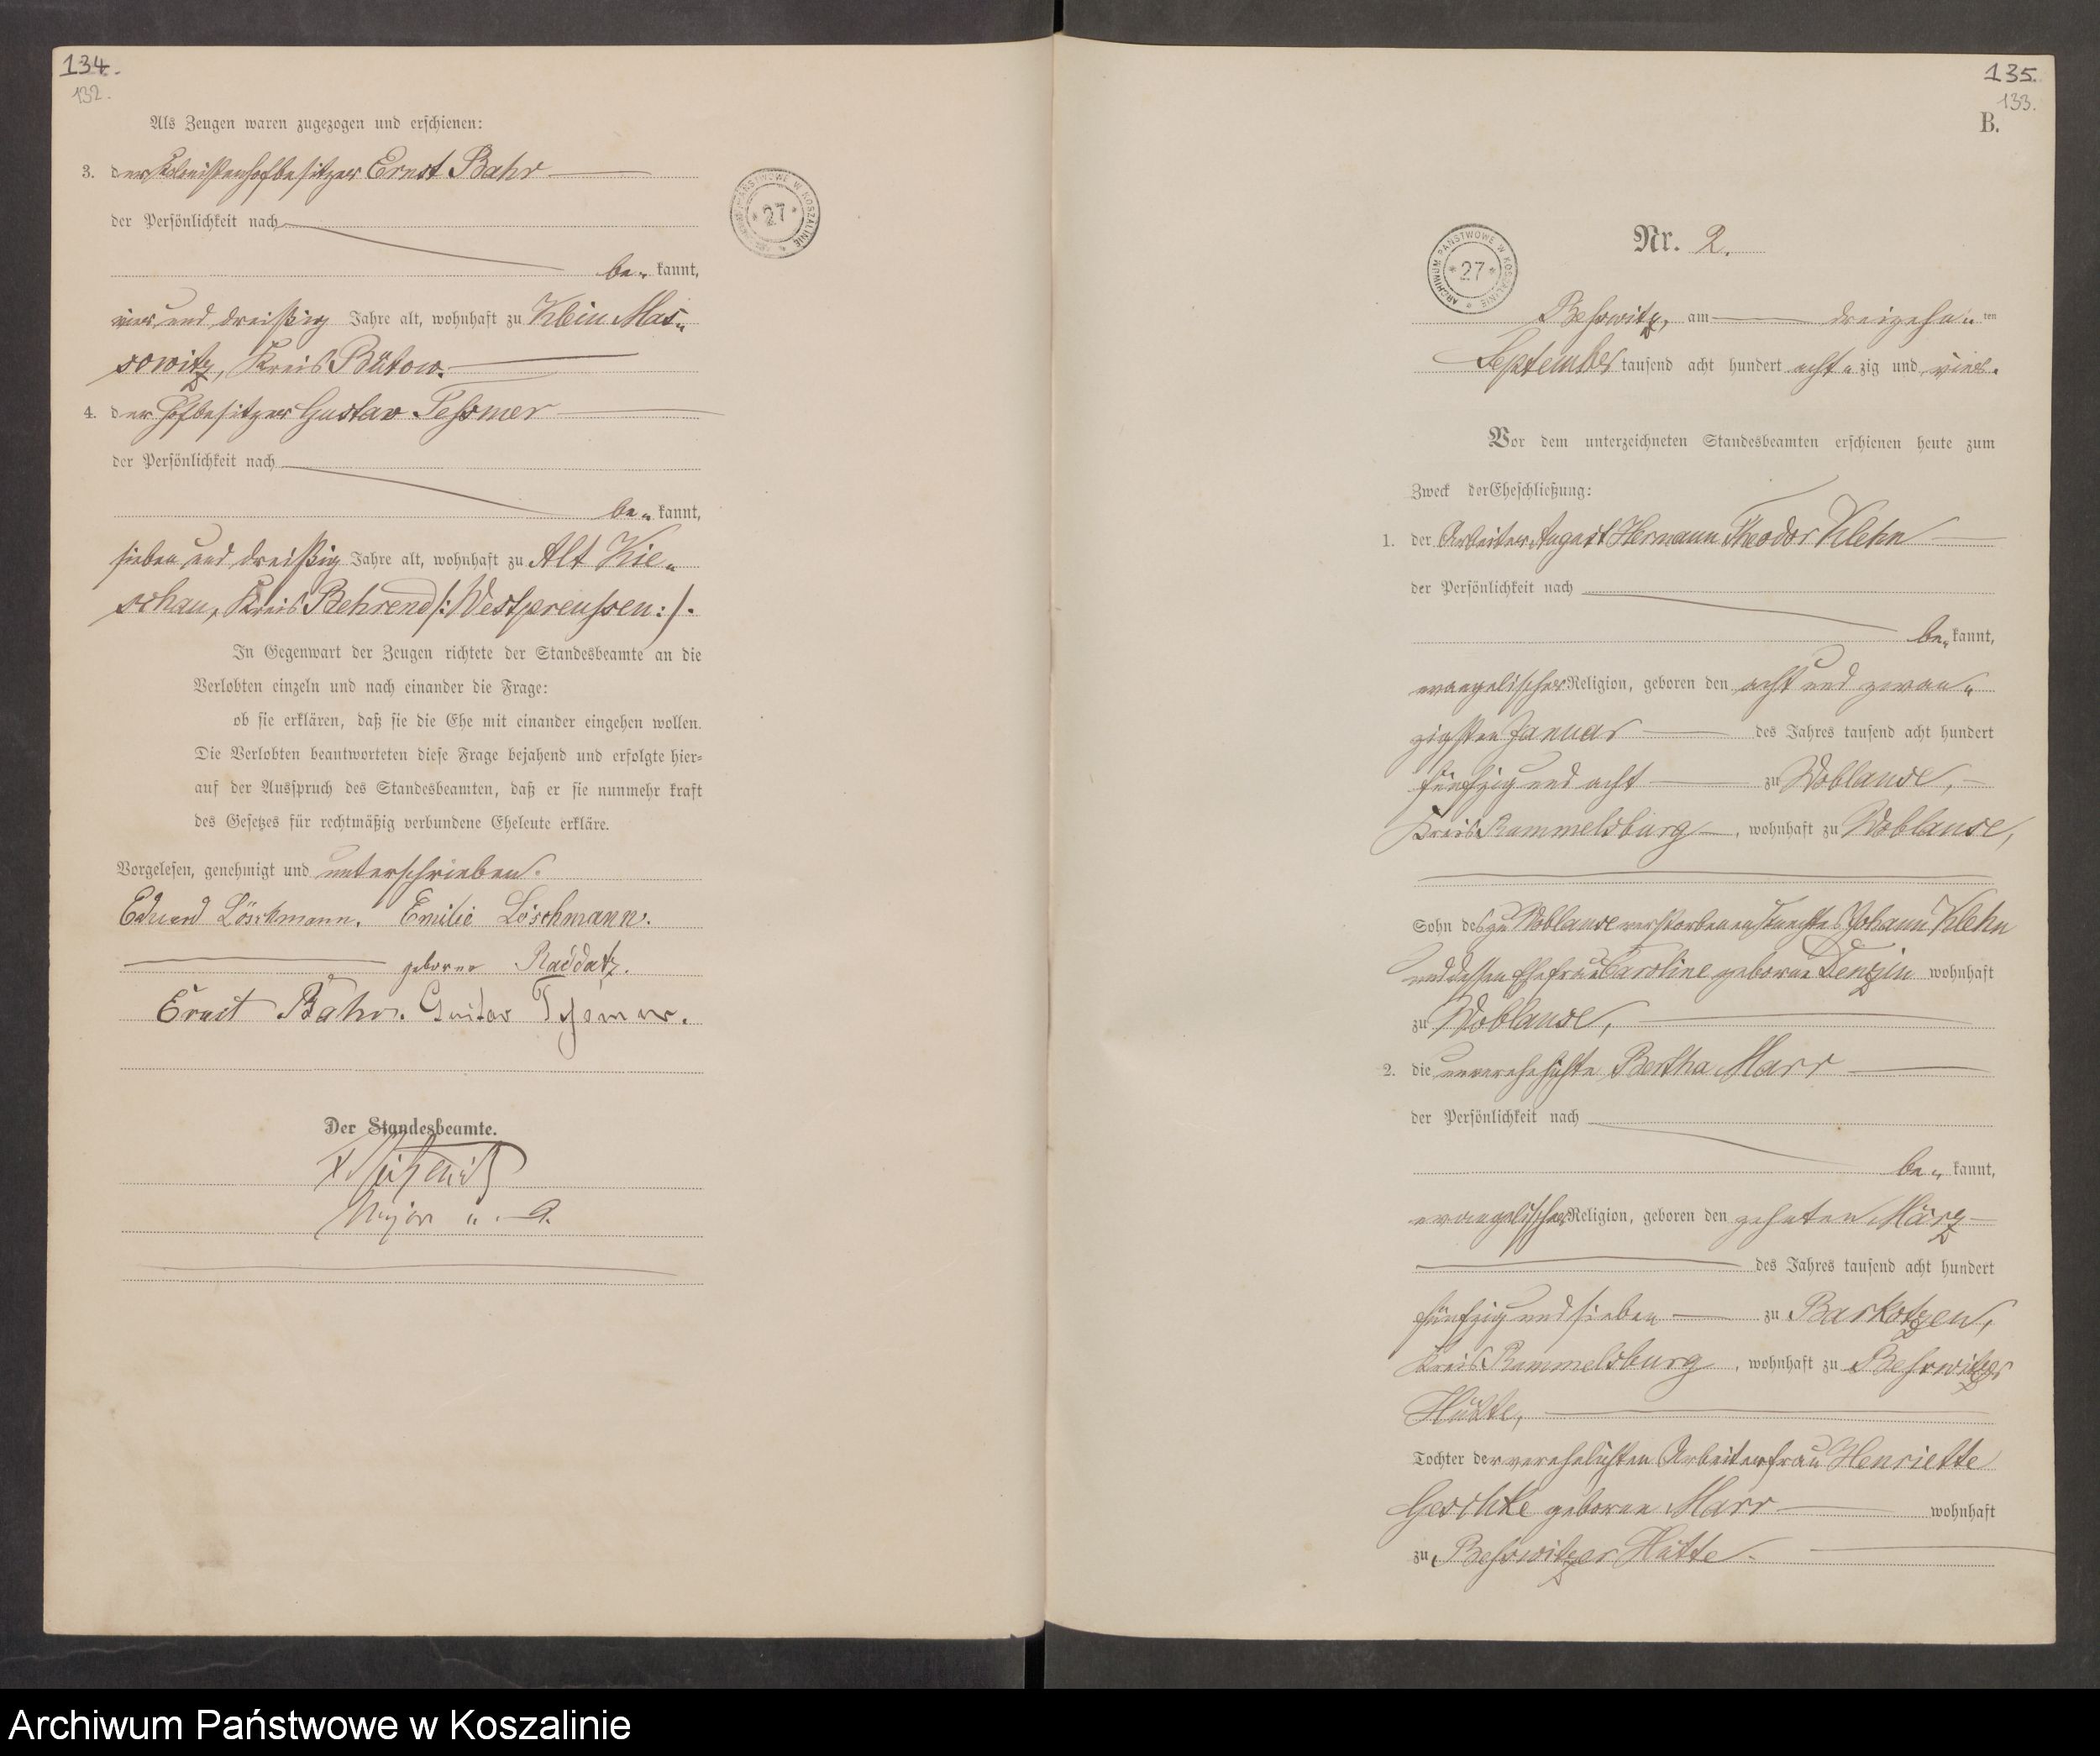 134.
132.
Als Zeugen waren zugezogen und erschienen:
3. der Kolonistenhofbesitzer Ernst Bahr
der Persönlichkeit nach
be- kannt,
vier und dreißig Jahre alt, wohnhaft zu Klein Mas-
sowitz, Kreis Bütow.
4. der Hofbesitzer Gustav Teßmer
der Persönlichkeit nach
be- kannt,
sieben und dreißig Jahre alt, wohnhaft zu Alt Kie-
schau, Kreis Behrend /: Westpreussen :/.
In Gegenwart der Zeugen richtete der Standesbeamte an die
Verlobten einzeln und nach einander die Frage:
ob sie erklären, daß sie die Ehe mit einander eingehen wollen.
Die Verlobten beantworteten diese Frage bejahend und erfolgte hier-
auf der Ausspruch des Standesbeamten, daß er sie nunmehr kraft
des Gesetzes für rechtmäßig verbundene Eheleute erkläre.
Vorgelesen, genehmigt und unterschrieben.
Eduard Löschmann. Emilie Löschmann.
geborne Raddatz.
Ernst Bahr. Gustav Teßmer.
Der Standesbeamte.
Major a. D.
ARCHIWUM PAŃSTWOWE W KOSZALINIE * 27 *
135.
133.
B.
ARCHIWUM PAŃSTWOWE W KOSZALINIE * 27 *
Nr. 2.
Beßwitz, am dreizehn- ten
September tausend acht hundert acht-zig und vier.
Vor dem unterzeichneten Standesbeamten erschienen heute zum
Zweck der Eheschließung:
1. der Arbeiter August Hermann Theodor Klehn
der Persönlichkeit nach
be- kannt,
evangelischer Religion, geboren den acht und zwan-
zigsten Januar des Jahres tausend acht hundert
fünfzig und acht zu Woblanse,
Kreis Rummelsburg, wohnhaft zu Woblanse,
Sohn des zu Woblanse verstorbenen Knechtes Johann Klehn
und dessen Ehefrau Caroline geborne Denzin wohnhaft
zu Woblanse,
2. die unverehelichte Bertha Marr
der Persönlichkeit nach
be- kannt,
evangelischer Religion, geboren den zehnten März
des Jahres tausend acht hundert
fünfzig und sieben zu Barkotzen,
Kreis Rummelsburg, wohnhaft zu Beßwitzer
Hütte,
Tochter der verehelichten Arbeiterfrau Henriette
Geschke geborne Marr wohnhaft
zu Beßwitzer Hütte.
Archiwum Państwowe w Koszalinie